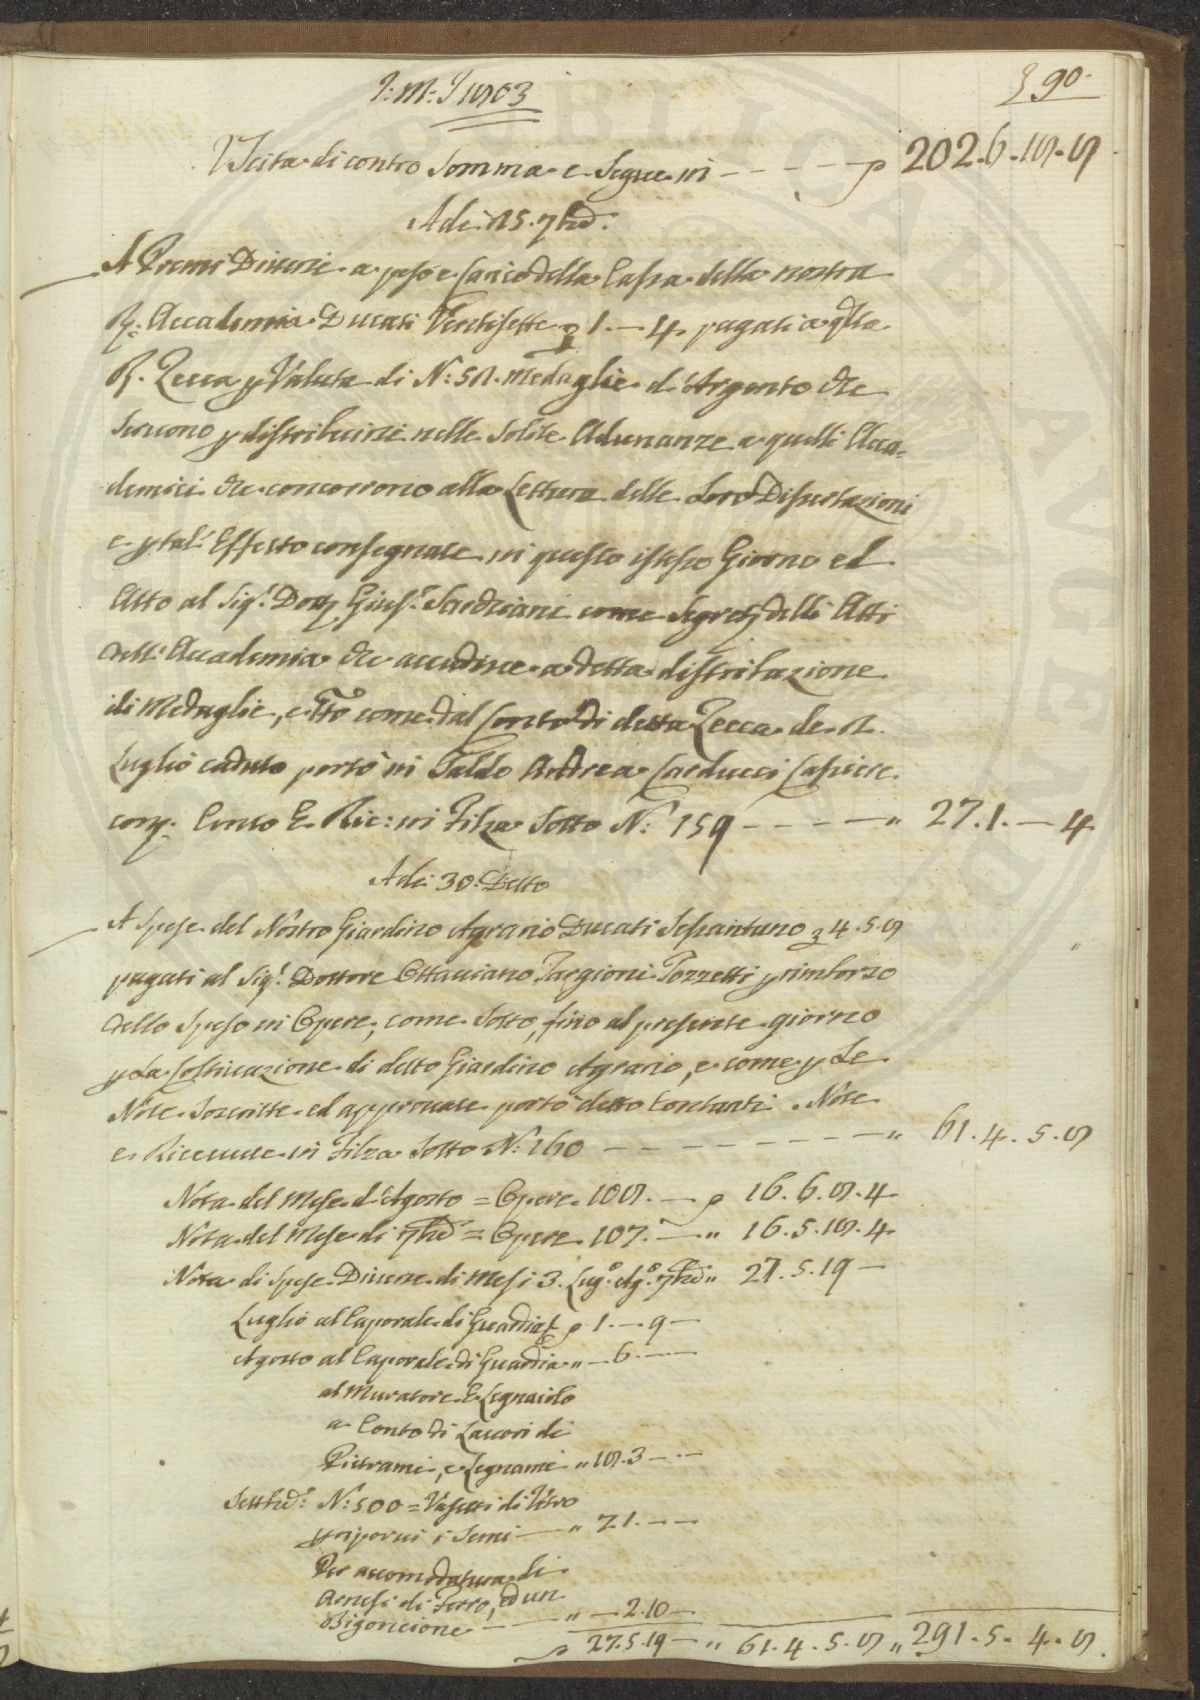 J: M: J 1803
90
Uscita di contro Somma e Segue in - - - - 202.6.18.8
Adi: 15. 7bre:
A Premi Diversi a peso e Carico della Cassa della nostra
R. Accademia Ducati Ventisette 1. — 4. pagati a q.ta
R. Zecca p Valuta di N: 51. Medaglie d'Argento che
Servono p distribuirsi nelle Solite Adunanze a quelli Acca-
demici che concorrono alla Lettura delle Loro Dissertazioni
e p tal' Effetto consegnate in questo istesso Giorno ed
Atto al Sig.r Dott. Gius.e Sarchiani come Segret. delli Atti
dell' Accademia che accudisce a detta distribuzione
di Medaglie, e tto come dal Conto di detta Zecca de 1.
Luglio caduto portò in Saldo Andrea Carducci Cassiere
come Conto E. Ric: in Filza Sotto N: 159 - - - - " 27.1. — 4
Adi: 30. Detto
A Spese del Nostro Giardino Agrario Ducati Sessantuno 4.5.8
pagati al Sig.r Dottore Ottaviano Targioni Tozzetti p rimborso
dello Speso in Opere, come Sotto, fino al presente giorno
p La Coltivazione di detto Giardino Agrario, e come p Le
Note Soscritte ed approvate portò detto Contanti. Note
e Ricevute in Filza Sotto N: 160 - - - - - - - - " 61.4.5.8
Nota del Mese d'Agosto = Opere 108. — 16.6.8.4
Nota del Mese di 7bre = Opere 107. — " 16.5.18.4
Nota di Spese Diverse di Mesi 3. Lug.o Ag.o 7bre " 27.5.19 —
Luglio al Caporale di Guardia 1. — 9 —
Agosto al Caporale di Guardia " — 6 — —
al Muratore E. Legnaiolo
a Conto di Lavori di
Pietrami, e Legnami " 18.3 — —
Settbre: N: 500 = Vasetti di Vetro
p riporvi i Semi — " 7.1. — —
Per accomodatura di
Arnesi di Ferro, ed un
Bigoncione — — " — 2.10 —
27.5.19 — " 61.4.5.8 " 291.5. 4.8.